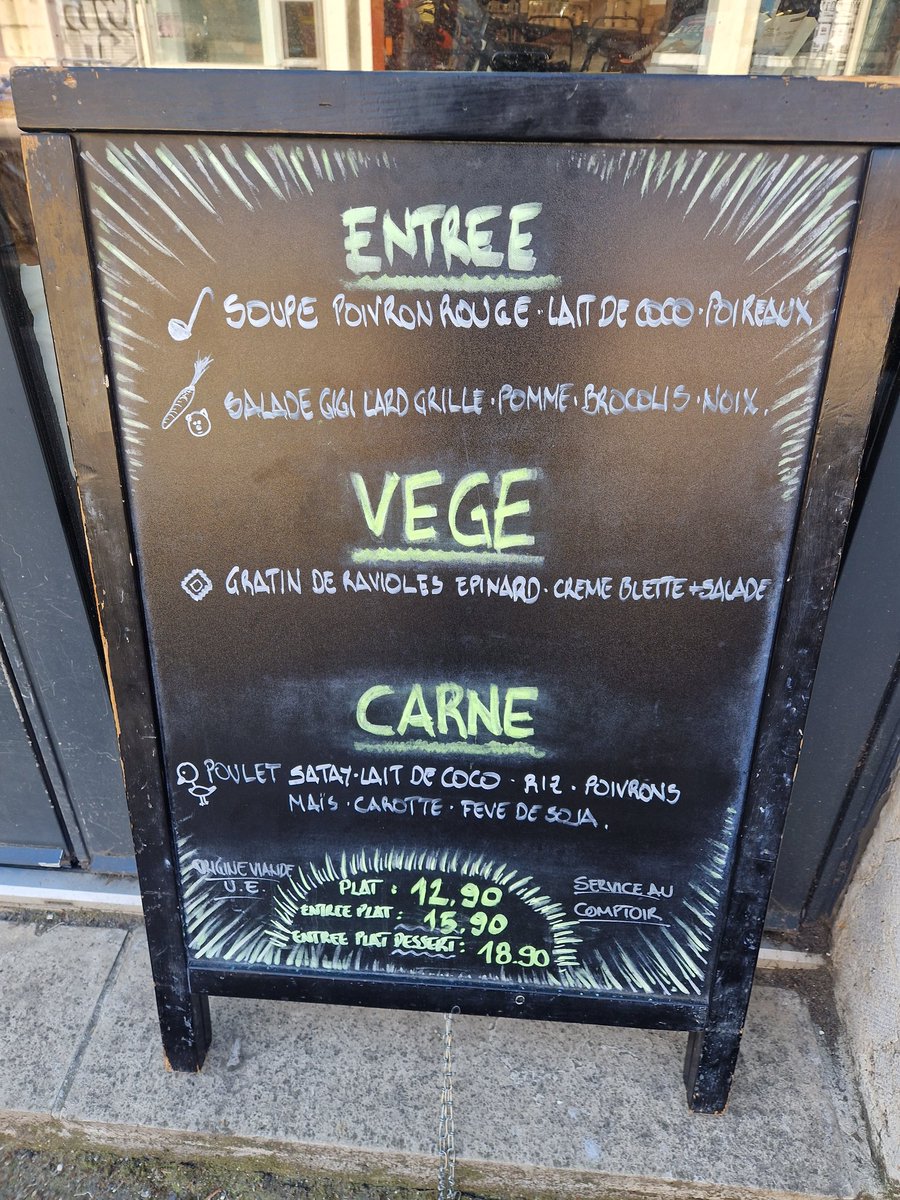 ENTREE
SOUPE POIVRON ROUGE · LAIT DE COCO · POIREAUX
SALADE GIGI LARD GRILLE · POMME · BROCOLIS · NOIX.
VEGE
GRATIN DE RAVIOLES EPINARD · CREME BLETTE + SALADE
CARNE
POULET SATAY · LAIT DE COCO · RIZ · POIVRONS
MAÏS · CAROTTE · FEVE DE SOJA.
ORIGINE VIANDE
U.E.
PLAT : 12,90
ENTREE PLAT : 15,90
ENTREE PLAT DESSERT : 18.90
SERVICE AU
COMPTOIR